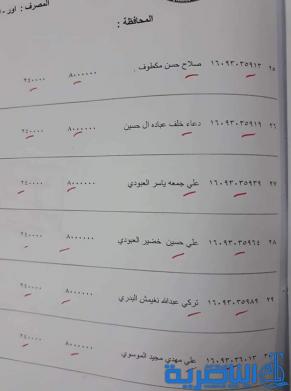 المصرف : اور-
المحافظة :
٢٥ ١٦٠٩٣٠٣٥٩١٣ صلاح حسن مكطوف ٨٠٠٠٠٠٠ ٢٤٠٠٠٠
٢٦ ١٦٠٩٣٠٣٥٩١٩ دعاء خلف عباده ال حسين ٨٠٠٠٠٠٠ ٢٤٠٠٠٠
٢٧ ١٦٠٩٣٠٣٥٩٣٩ علي جمعه ياسر العبودي ٨٠٠٠٠٠٠ ٢٤٠٠٠٠
٢٨ ١٦٠٩٣٠٣٥٩٦٤ علي حسين خضير العبودي ٨٠٠٠٠٠٠ ٢٤٠٠٠٠
٢٩ ١٦٠٩٣٠٣٥٩٨٩ تركي عبدالله نغيمش البدري ٨٠٠٠٠٠٠ ٢٤٠٠٠٠
١٦٠٩٣٠٣٦٠١٣ علي مهدي مجيد الموسوي ٨٠٠٠٠٠٠ ٢٤٠٠٠٠
الناصرية